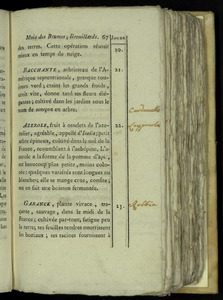 Mois de Brumes, Brouillards. 67 Jours
des terres. Cette opération réussit
mieux en temps de neige.
20.
BACCHANTE, arbrisseau de l'A-
mérique septentrionale, presque tou-
jours verd, craint les grands froids,
étoit vite, donne tard ses fleurs dis-
; cultivé dans les jardins sous le
nom de seneçon en arbre.
21.
AZEROLE, fruit à noyaux de l'azero-
lier, agréable, appellé d'Italie; petit
arbre épineux, cultivé dans le midi de la
France, ressemblant à l'aubépine. L'a-
zerole a la forme de la pomme d'api,
et beaucoup plus petite, moins colo-
rée; quelques variétés sont longues ou
blanches; elle se mange crue, confite;
on en fait une boisson fermentée.
22.
GARANCE, plante vivace, ra-
pante, sauvage, dans le midi de la
France; cultivée par-tout, fatigue peu
la terre, ses feuilles tendres nourrissent
les bestiaux; ses racines fournissent à
23.